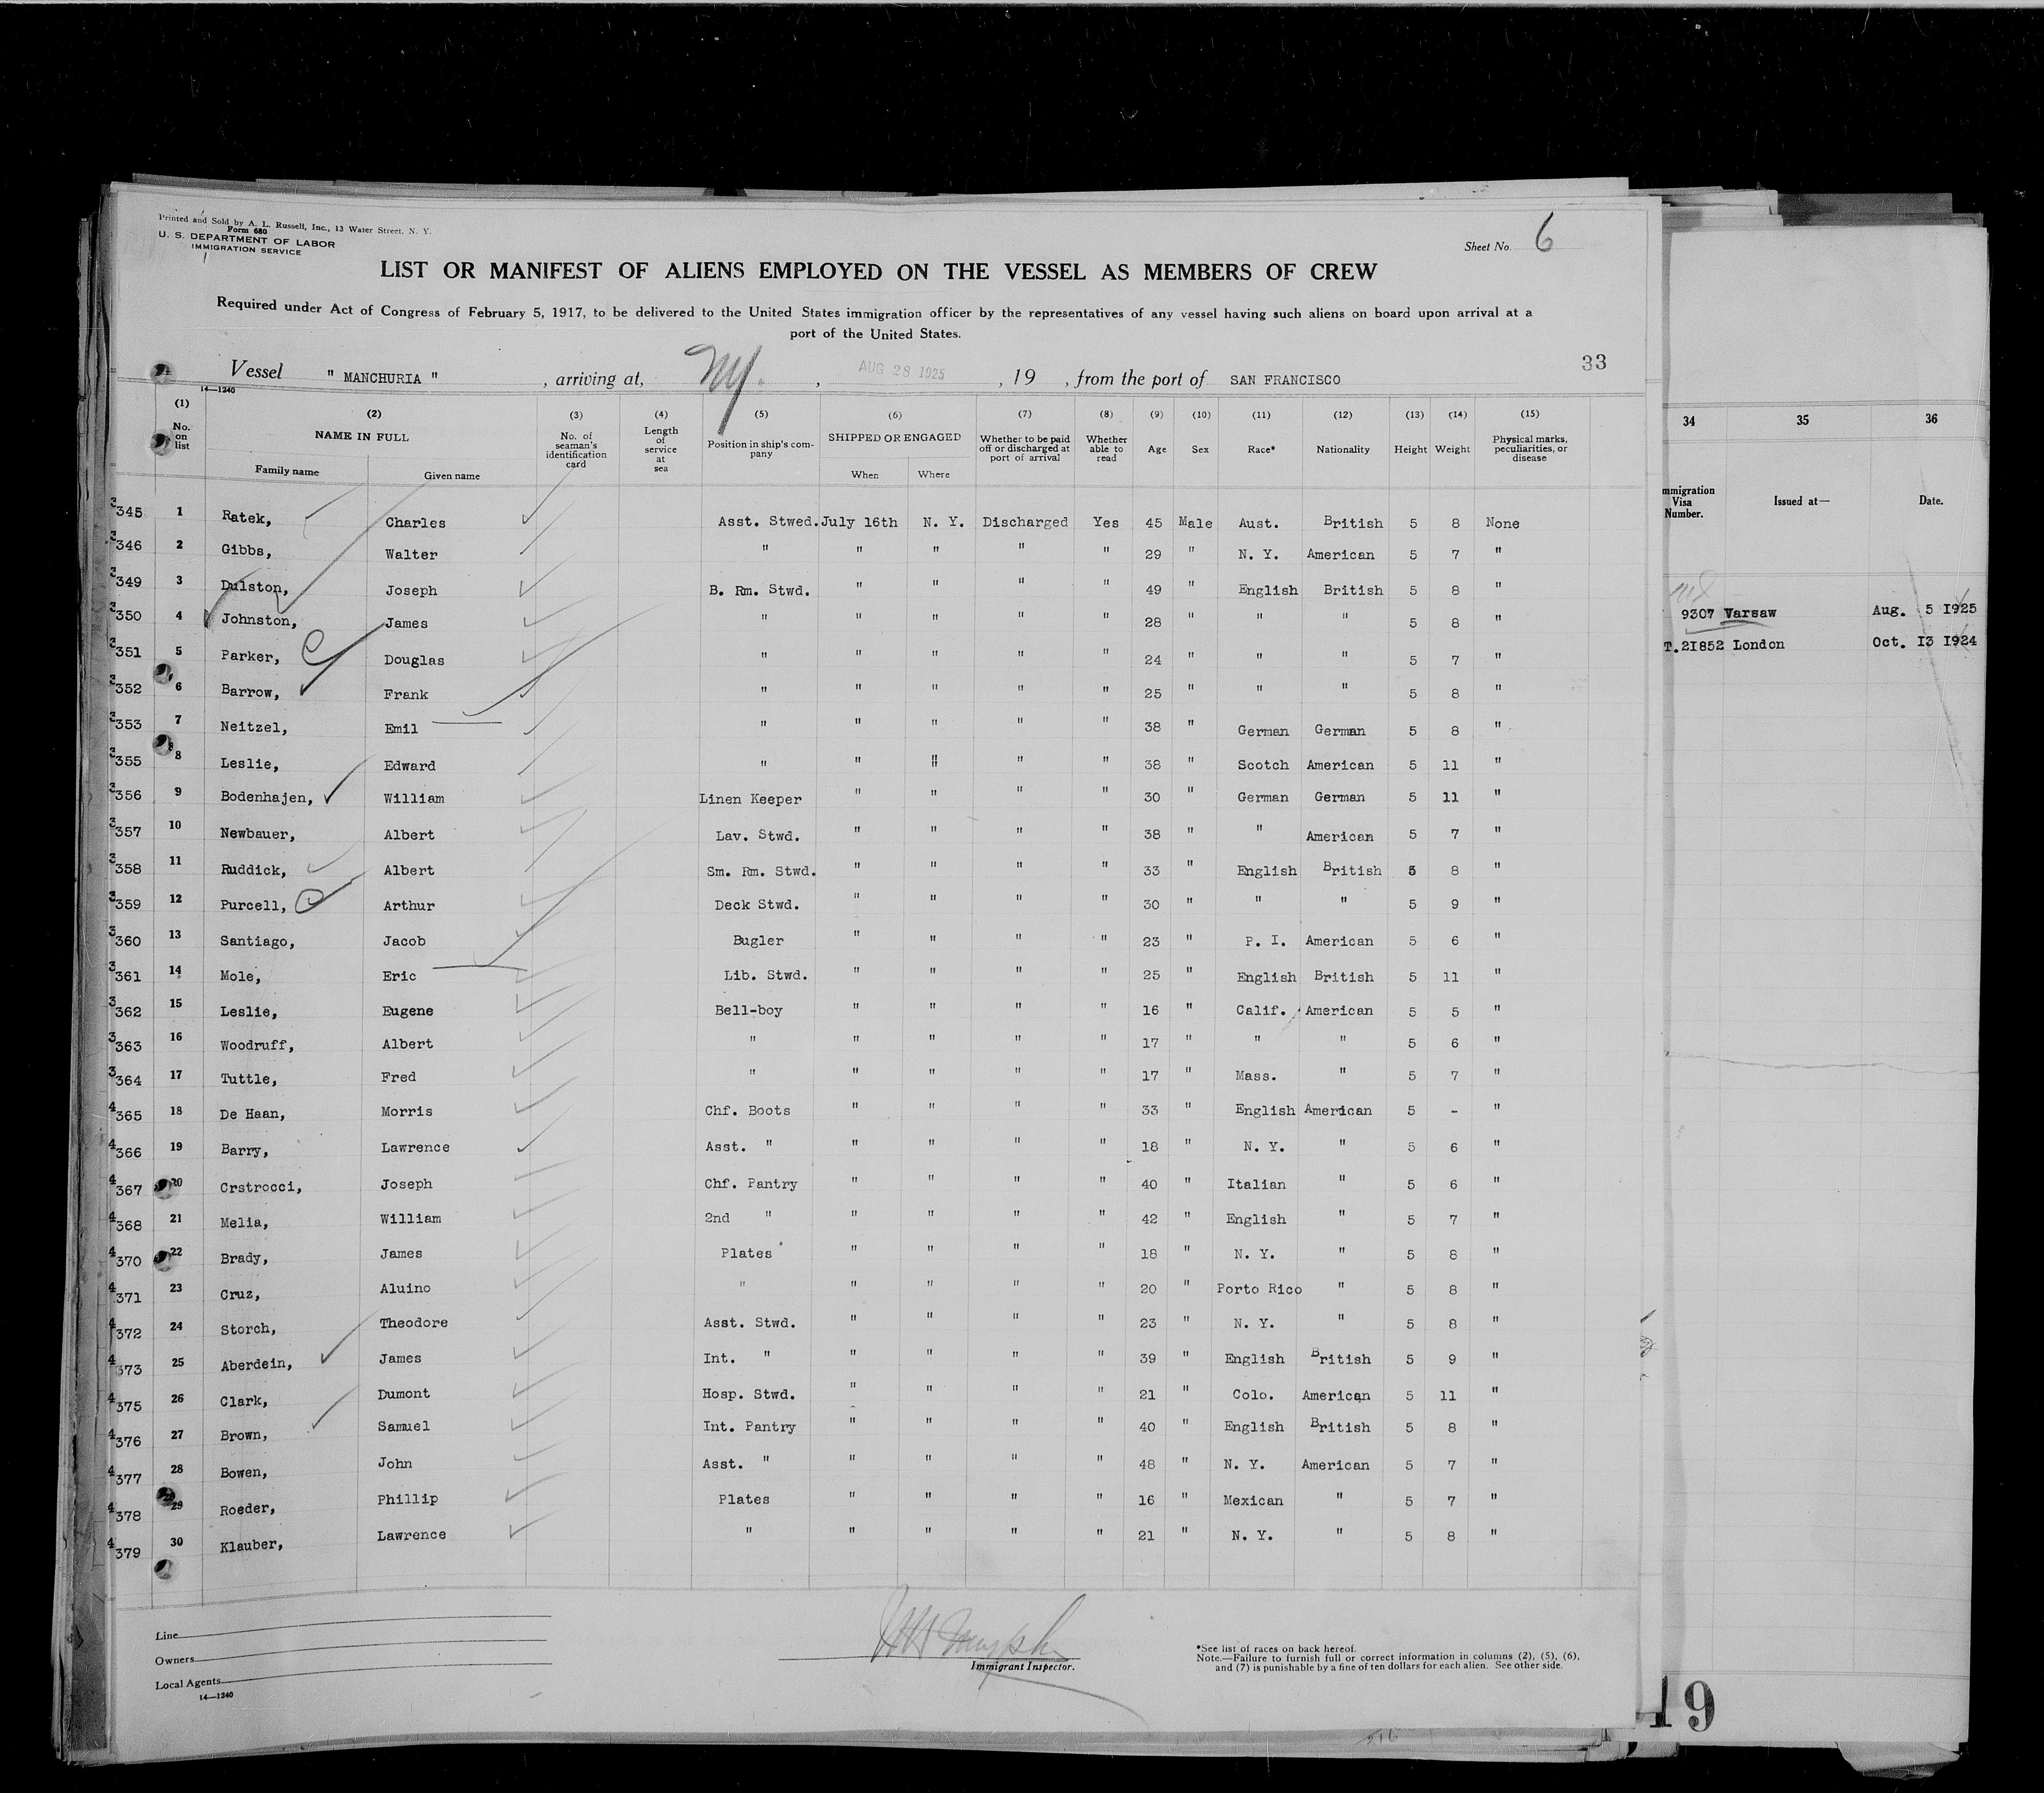 Printed and Sold by A. L. Russell, Inc., 13 Water Street. N. Y.
Form 680
U. S. DEPARTMENT OF LABOR
IMMIGRATION SERVICE
Sheet No. 6
LIST OR MANIFEST OF ALIENS EMPLOYED ON THE VESSEL AS MEMBERS OF CREW
Required under Act of Congress of February 5, 1917, to be delivered to the United States immigration officer by the representatives of any vessel having such aliens on board upon arrival at a
port of the United States.
Vessel " MANCHURIA " , arriving at, NY. , AUG 28 1925 , 19 , from the port of SAN FRANCISCO 33
14—1240
(1) No. on list
(2) NAME IN FULL Family name Given name
(3) No. of seaman's identification card
(4) Length of service at sea
(5) Position in ship's company
(6) SHIPPED OR ENGAGED When Where
(7) Whether to be paid off or discharged at port of arrival
(8) Whether able to read
(9) Age
(10) Sex
(11) Race*
(12) Nationality
(13) Height
(14) Weight
(15) Physical marks, peculiarities, or disease
3 345 1 Ratek, Charles Asst. Stwed. July 16th N. Y. Discharged Yes 45 Male Aust. British 5 8 None
3 346 2 Gibbs, Walter " " " " " 29 " N. Y. American 5 7 "
3 349 3 Dulston, Joseph B. Rm. Stwd. " " " " 49 " English British 5 8 "
3 350 4 Johnston, James " " " " " 28 " " " 5 8 "
3 351 5 Parker, Douglas " " " " " 24 " " " 5 7 "
3 352 6 Barrow, Frank " " " " " 25 " " " 5 8 "
3 353 7 Neitzel, Emil " " " " " 38 " German German 5 8 "
3 355 8 Leslie, Edward " " " " " 38 " Scotch American 5 11 "
3 356 9 Bodenhajen, William Linen Keeper " " " " 30 " German German 5 11 "
3 357 10 Newbauer, Albert Lav. Stwd. " " " " 38 " " American 5 7 "
3 358 11 Ruddick, Albert Sm. Rm. Stwd. " " " " 33 " English British 5 8 "
3 359 12 Purcell, Arthur Deck Stwd. " " " " 30 " " " 5 9 "
3 360 13 Santiago, Jacob Bugler " " " " 23 " P. I. American 5 6 "
3 361 14 Mole, Eric Lib. Stwd. " " " " 25 " English British 5 11 "
3 362 15 Leslie, Eugene Bell-boy " " " " 16 " Calif. American 5 5 "
3 363 16 Woodruff, Albert " " " " " 17 " " " 5 6 "
3 364 17 Tuttle, Fred " " " " " 17 " Mass. " 5 7 "
4 365 18 De Haan, Morris Chf. Boots " " " " 33 " English American 5 - "
4 366 19 Barry, Lawrence Asst. " " " " " 18 " N. Y. " 5 6 "
4 367 20 Crstrocci, Joseph Chf. Pantry " " " " 40 " Italian " 5 6 "
4 368 21 Melia, William 2nd " " " " " 42 " English " 5 7 "
4 370 22 Brady, James Plates " " " " 18 " N. Y. " 5 8 "
4 371 23 Cruz, Aluino " " " " " 20 " Porto Rico " 5 8 "
4 372 24 Storch, Theodore Asst. Stwd. " " " " 23 " N. Y. " 5 8 "
4 373 25 Aberdein, James Int. " " " " " 39 " English British 5 9 "
4 375 26 Clark, Dumont Hosp. Stwd. " " " " 21 " Colo. American 5 11 "
4 376 27 Brown, Samuel Int. Pantry " " " " 40 " English British 5 8 "
4 377 28 Bowen, John Asst. " " " " " 48 " N. Y. American 5 7 "
4 378 29 Roeder, Phillip Plates " " " " 16 " Mexican " 5 7 "
4 379 30 Klauber, Lawrence " " " " " 21 " N. Y. " 5 8 "
Line
Owners
Local Agents
14—1240
Immigrant Inspector.
*See list of races on back hereof.
Note.—Failure to furnish full or correct information in columns (2), (5), (6),
and (7) is punishable by a fine of ten dollars for each alien. See other side.
34 35 36
mmigration Visa Number. Issued at— Date.
9307 Warsaw Aug. 5 1925
T.21852 London Oct. 13 1924
19
216